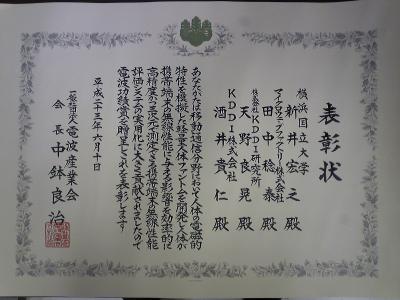 表彰状
横浜国立大学
新井宏之 殿
マイクロウェーブファクトリー株式会社
田中稔泰 殿
株式会社KDDI研究所
天野良晃 殿
KDDI株式会社
酒井貴仁 殿
あなたがたは移動通信分野において人体の電磁的
特性を模擬した軽量人体ファントムを開発し人体が
携帯端末の無線性能に与える影響を効率的に
高精度の三次元測定できる携帯端末の無線性能
評価システムの実用化に大きく貢献されましたので
電波功績賞を贈呈しこれを表彰します
平成二十三年六月十日
一般社団法人電波産業会
会長 中鉢良治